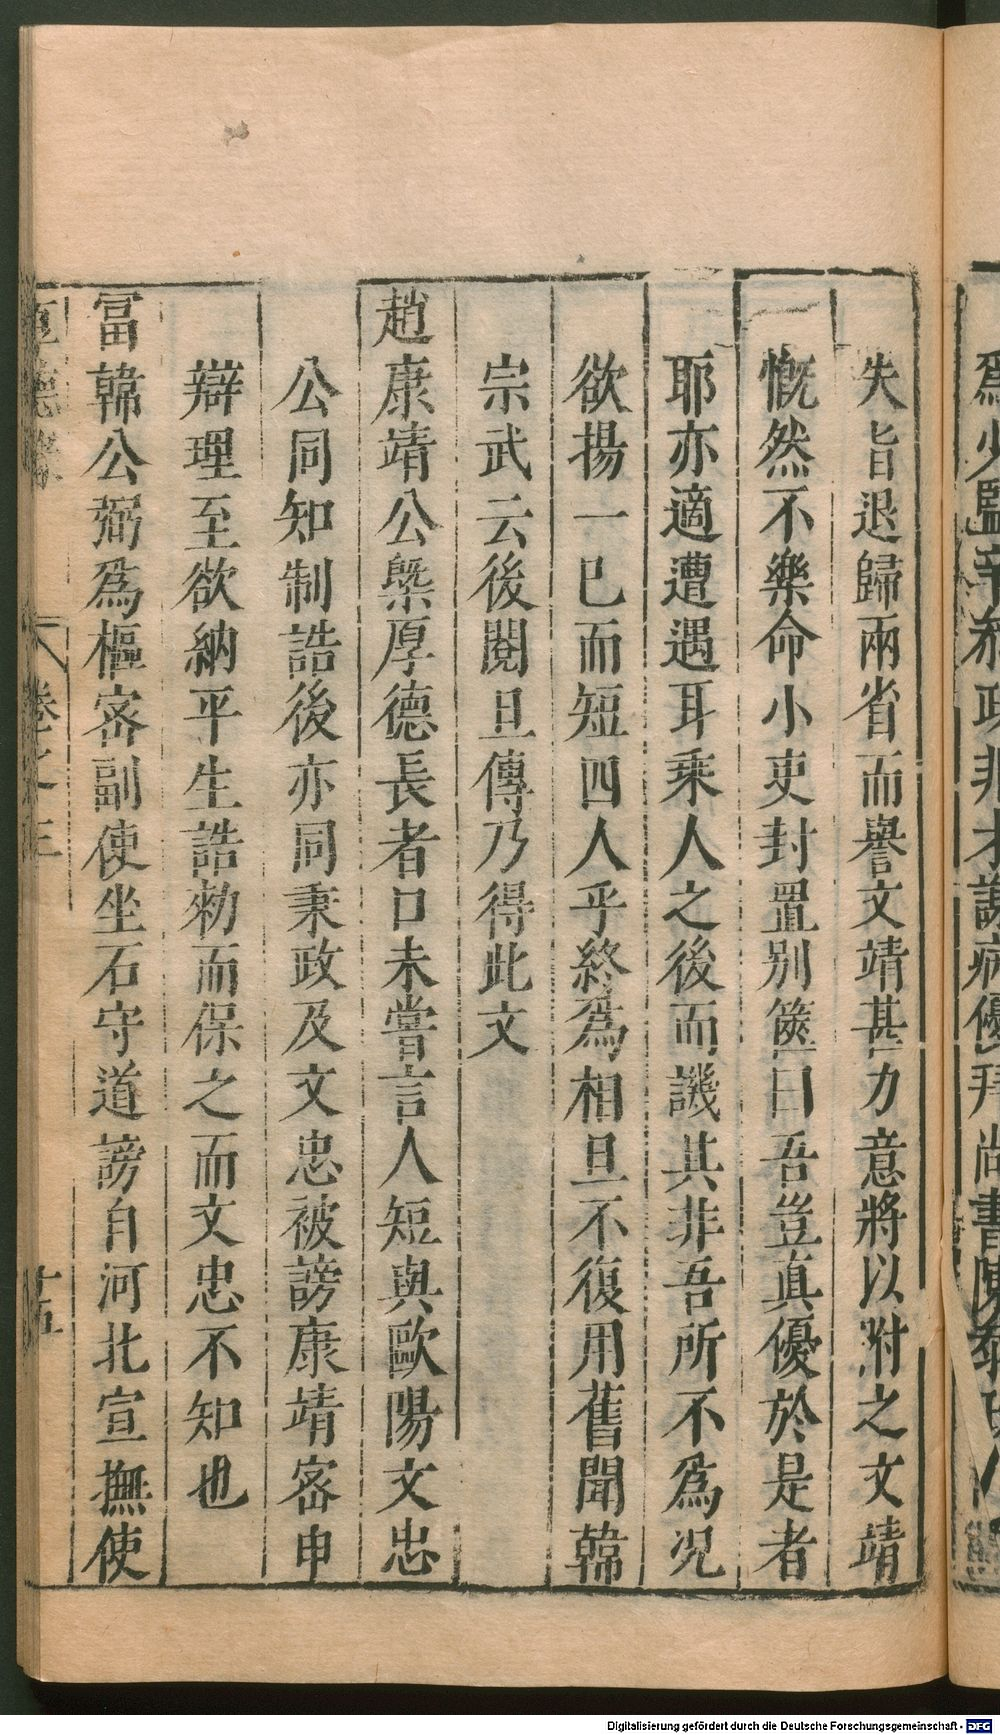 失旨退歸兩省而譽文靖甚力意將以附之文靖
慨然不樂命小吏封置别篋曰吾豈真優於是者
耶亦適遭遇耳乘人之後而譏其非吾所不為况
欲揚一已而短四人乎終為相旦不復用舊聞韓
宗武云後閱旦傳乃得此文
趙康靖公槩厚德長者口未嘗言人短與歐陽文忠
公同知制誥後亦同秉政及文忠被謗康靖密申
辯理至欲納平生誥勑而保之而文忠不知也
冨韓公弼為樞密副使坐石守道謗自河北宣撫使
卷之三
十五
Digitalisierung gefördert durch die Deutsche Forschungsgemeinschaft - DFG